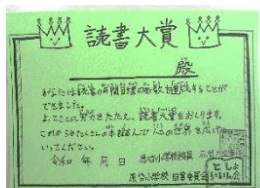 読書大賞
殿
あなたは読書の年間目標の冊数を達成することが
できました。
よってここに努力をたたえ、読書大賞をおくります。
これからもたくさんの本を読んで、心の世界を広げ
ていってください。
令和 年 月 日
小学校校長
小学校 図書委員会
としょ
いいん会